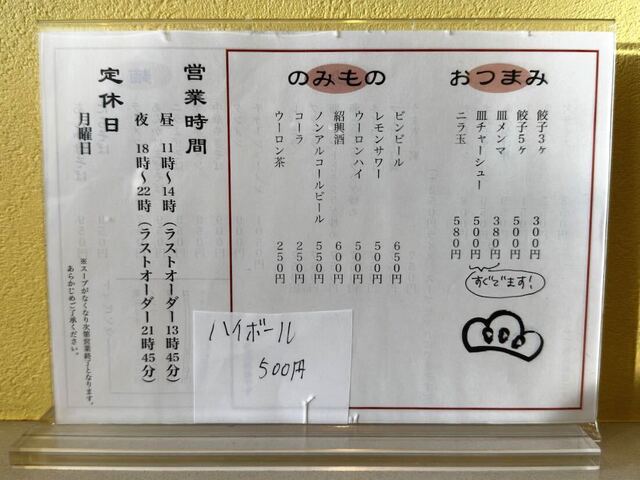 おつまみ
餃子3ヶ 300円
餃子5ヶ 500円
皿メンマ 380円
皿チャーシュー 500円
ニラ玉 580円
すぐでます!
のみもの
ビンビール 650円
レモンサワー 500円
ウーロンハイ 500円
紹興酒 600円
ノンアルコールビール 550円
コーラ 250円
ウーロン茶 250円
ハイボール
500円
営業時間
昼 11時〜14時(ラストオーダー13時45分)
夜 18時〜22時(ラストオーダー21時45分)
※スープがなくなり次第営業終了となります。
あらかじめご了承ください。
定休日
月曜日